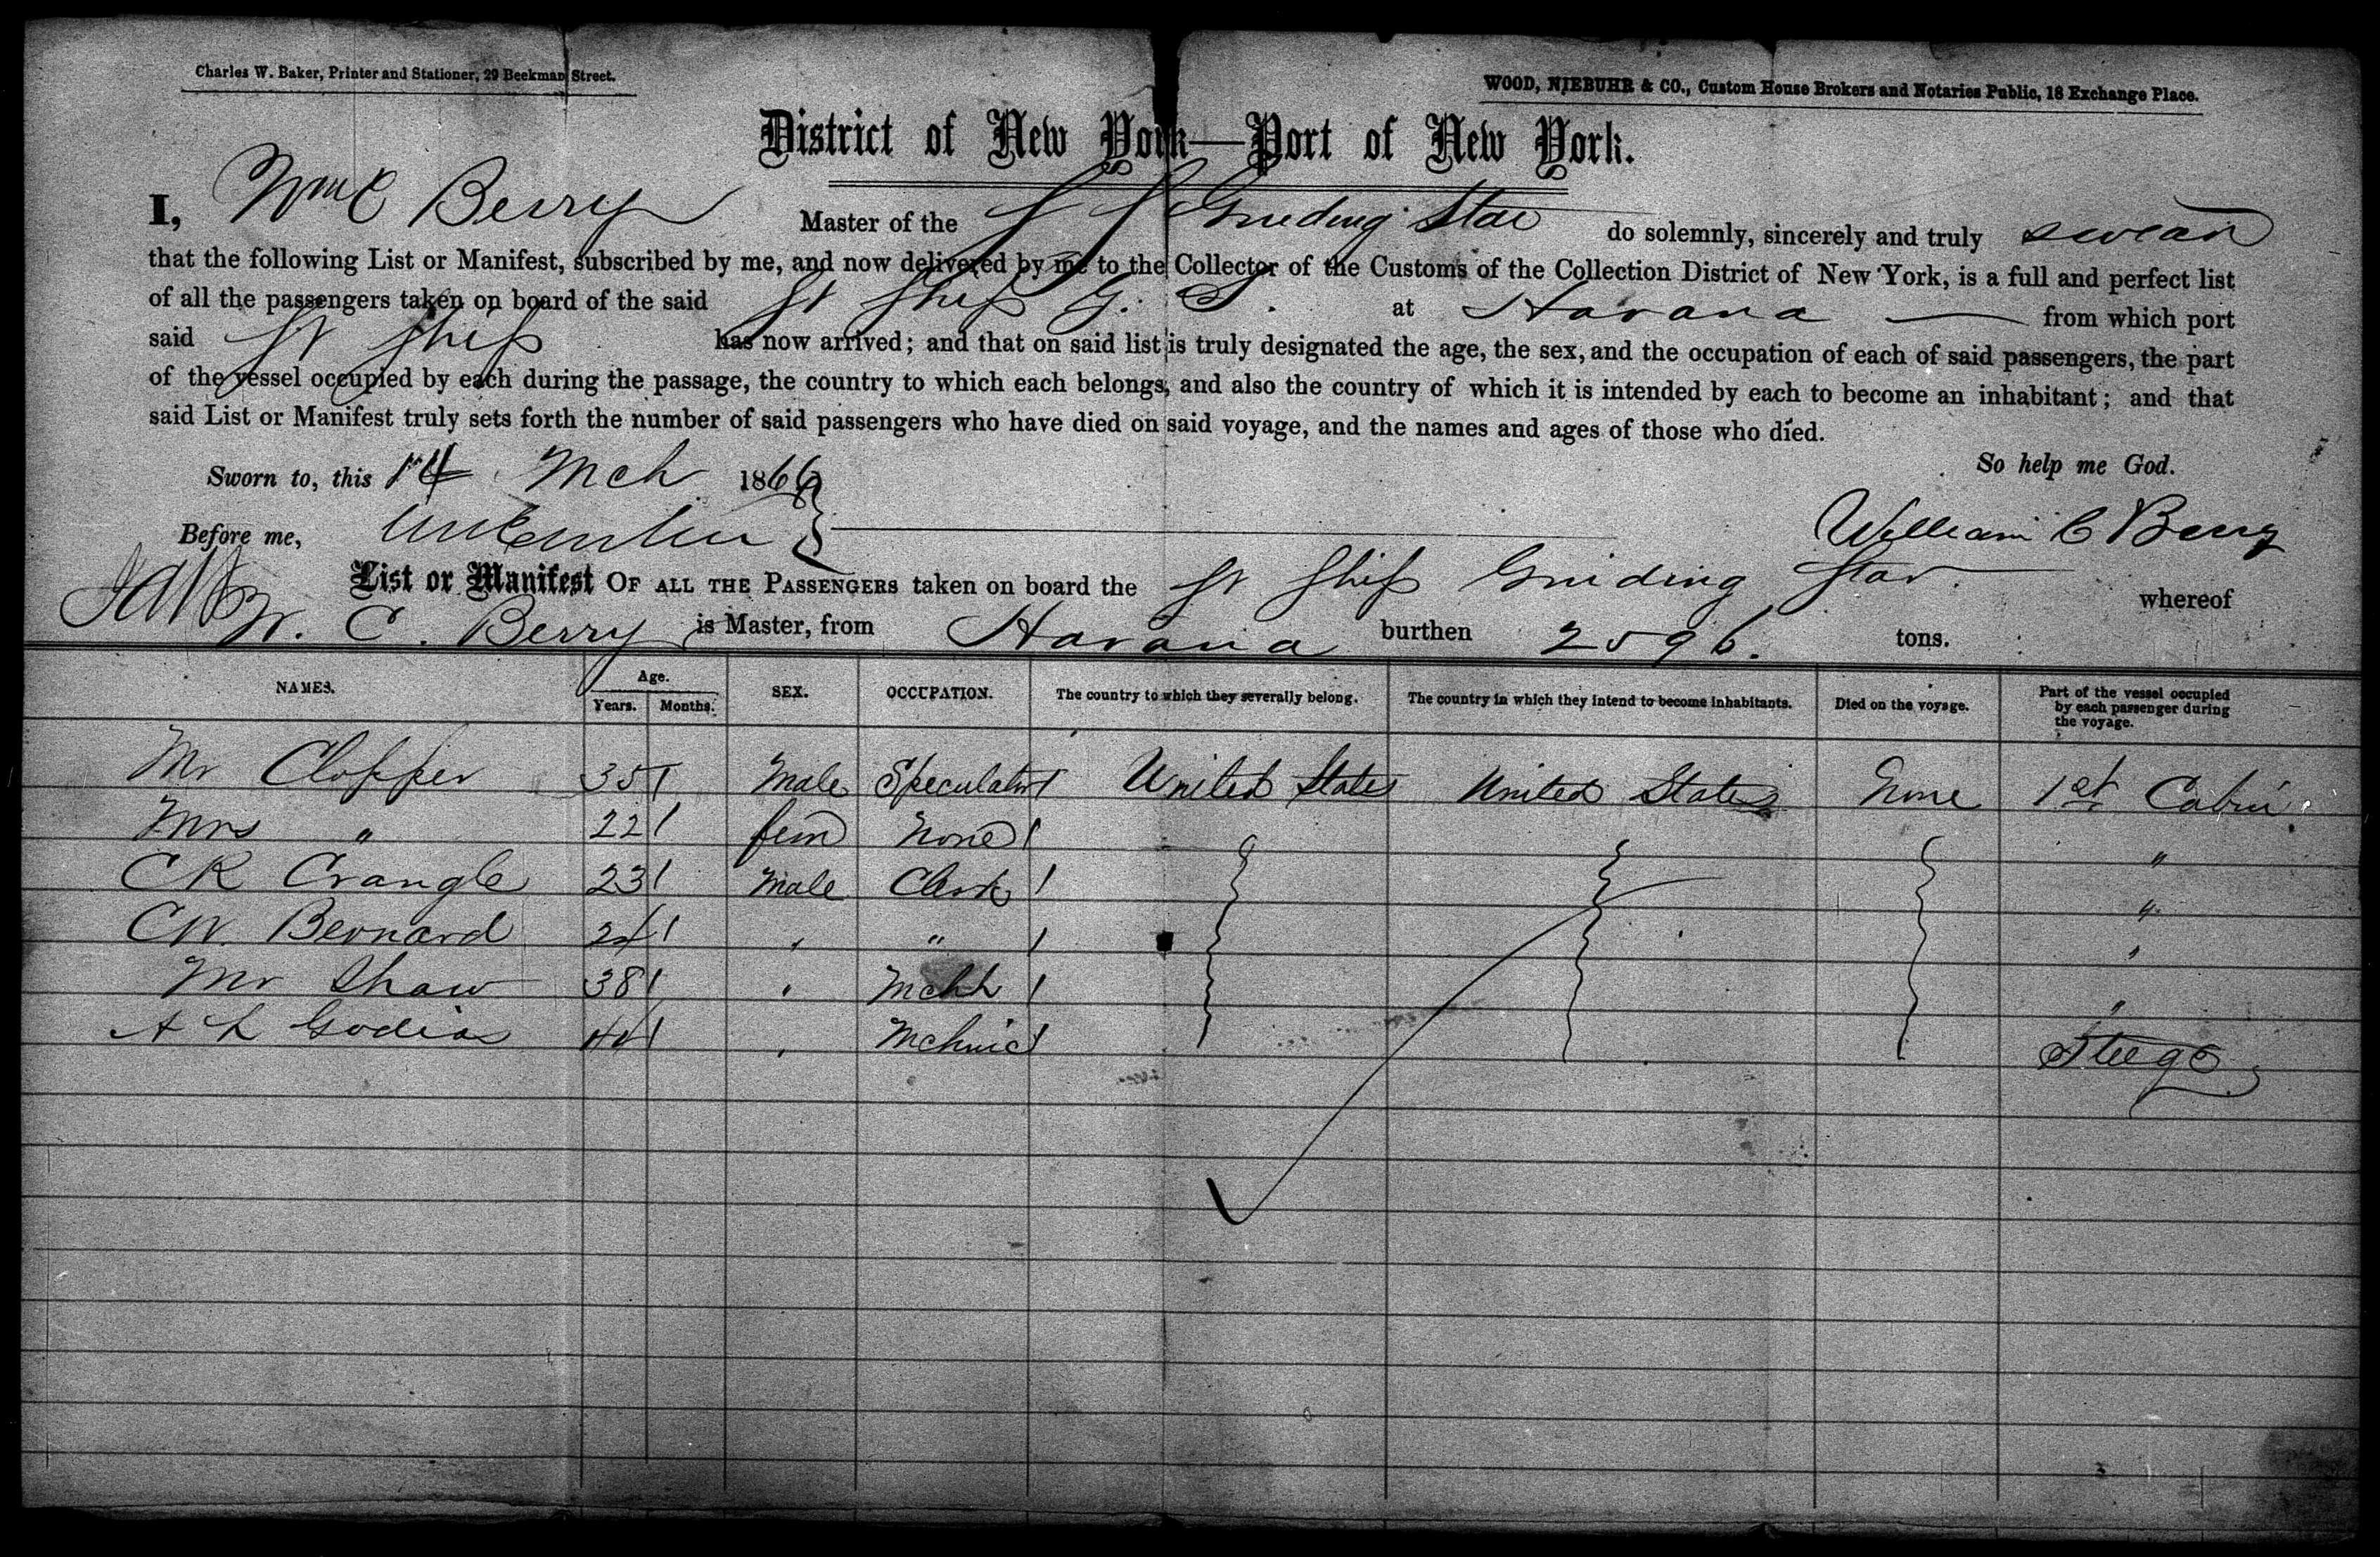 Charles W. Baker, Printer and Stationer, 29 Beekman Street.
WOOD, NIEBUHR & CO., Custom House Brokers and Notaries Public, 18 Exchange Place.
District of New York—Port of New York.
I, Wm C Berry Master of the S S Guiding Star do solemnly, sincerely and truly swear
that the following List or Manifest, subscribed by me, and now delivered by me to the Collector of the Customs of the Collection District of New York, is a full and perfect list
of all the passengers taken on board of the said St Ship G. S. at Havana from which port
said St Ship has now arrived; and that on said list is truly designated the age, the sex, and the occupation of each of said passengers, the part
of the vessel occupied by each during the passage, the country to which each belongs, and also the country of which it is intended by each to become an inhabitant; and that
said List or Manifest truly sets forth the number of said passengers who have died on said voyage, and the names and ages of those who died.
So help me God.
Sworn to, this 14 Mch 1866
Before me,
William C Berry
List or Manifest OF ALL THE PASSENGERS taken on board the St Ship Guiding Star. whereof
W. C. Berry is Master, from Havana burthen 2596. tons.
NAMES. Age. Years. Months. SEX. OCCUPATION. The country to which they severally belong. The country in which they intend to become inhabitants. Died on the voyage. Part of the vessel occupied by each passenger during the voyage.
Mr Clopper 35 Male Speculator United States United States None 1st Cabin
Mrs " 22 fem None "
CR Crangle 23 Male Clerk "
CW. Bernard " "
Mr Shaw 38 "
A L Mchnic Steege